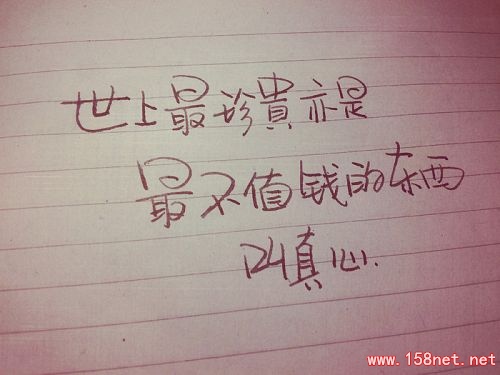 世上最珍貴亦是
最不值钱的东西
叫真心.
www.158net.net